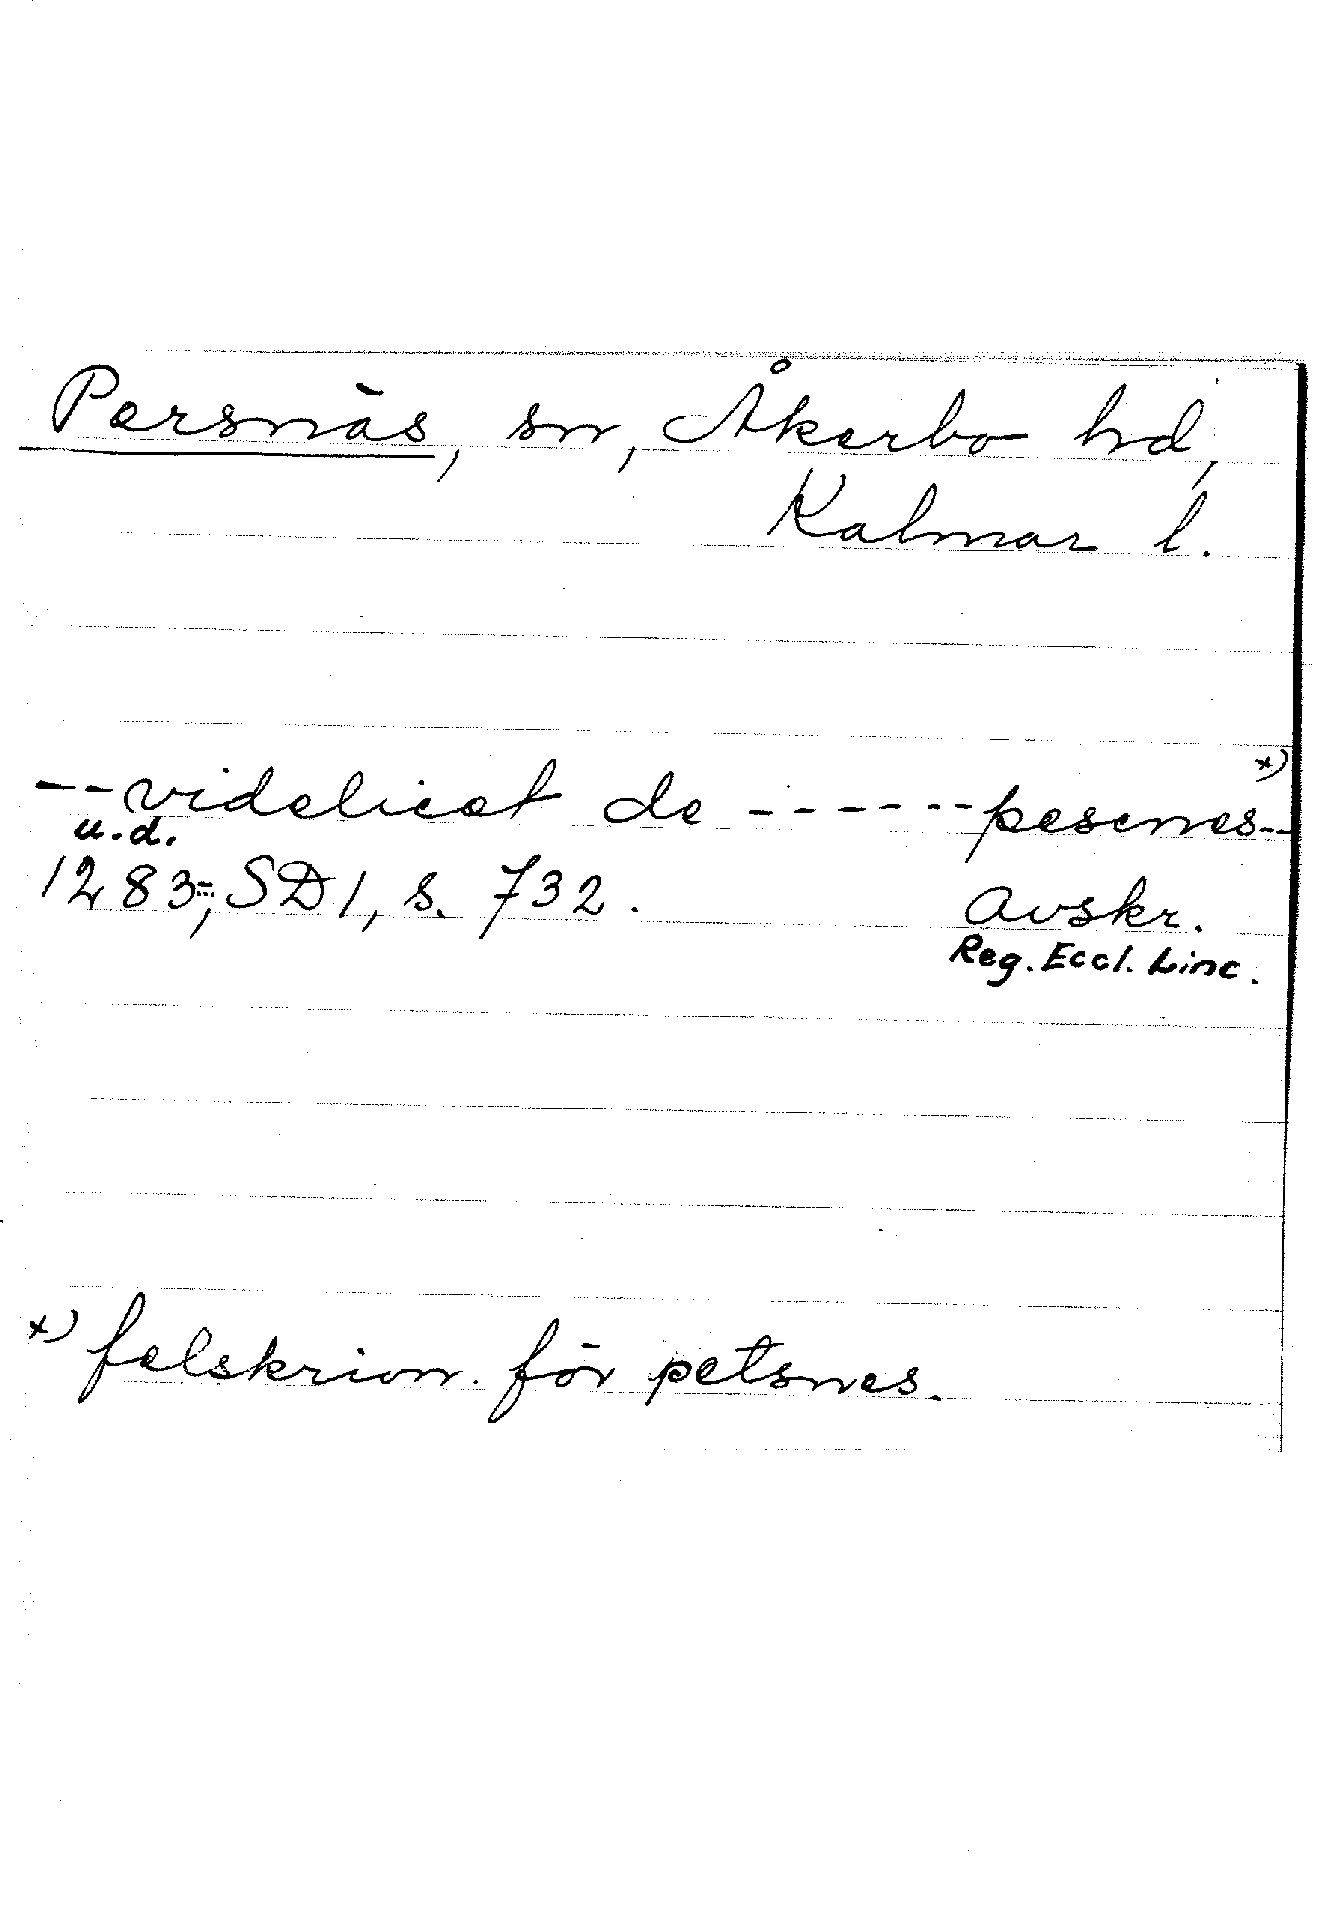 Persnäs, sn, Åkerbo hd,
Kalmar l.
--videlicet de ------pesenes--x)
u.d.
1283, SD1, s. 732. Avskr.
Reg. Eccl. Linc.
x) felskrivn. för petsnes.